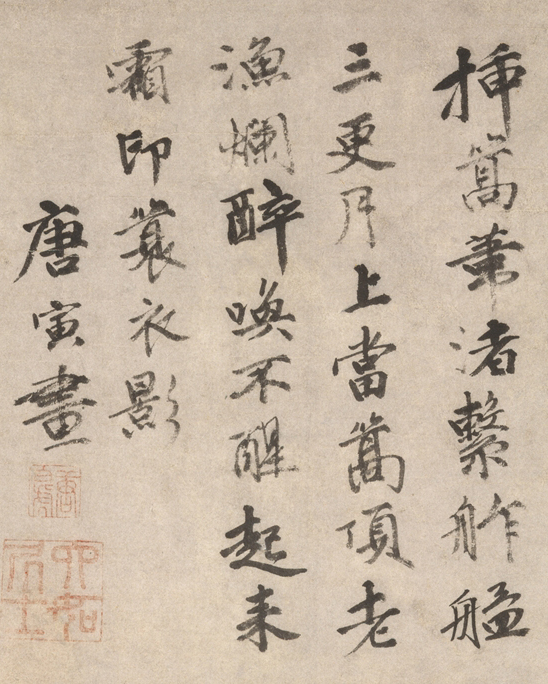 插篙葦渚繫舴艋
三更月上當篙頂老
漁爛醉喚不醒起来
霜印蓑衣影
唐寅畫
唐寅
六如居士